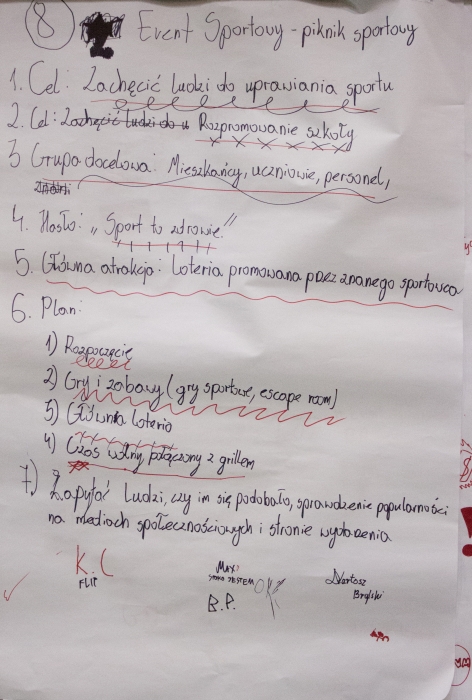 8 Event Sportowy - piknik sportowy
1. Cel: Zachęcić ludzi do uprawiania sportu
2. Cel: Zachęcić ludzi do u Rozpromowanie szkoły
3 Grupa docelowa: Mieszkańcy, uczniowie, personel,
4. Hasło: „Sport to zdrowie"
5. Główna atrakcja: Loteria promowana przez znanego sportowca
6. Plan:
1) Rozpoczęcie
2) Gry i zabawy (gry sportowe, escape room)
3) Główna loteria
4) Czas wolny połączony z grillem
7.) Zapytać ludzi, czy im się podobało, sprawdzenie popularności
na mediach społecznościowych i stronie wydarzenia
K.C
FLIP
MAX
B.P.
OK
Bartosz